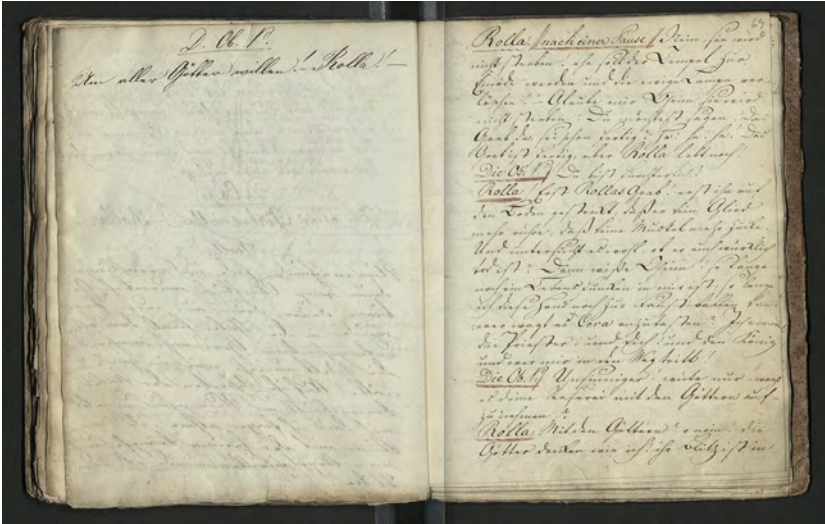 D. Ob. P.
Um aller Götter willen! – Rolla! –
69
Rolla. (nach einer Pause) Nein, sie wird
nicht sterben, ehe soll der Tempel zur
Einöde werden und die ewige Lampe ver-
löschen! – Glaube mir Oheim, sie wird
nicht sterben! Du möchtest sagen: Das
Grab da sei schon fertig; ha! ha! ha! Das
Grab ist fertig, aber Rolla lebt noch!
Die Ob. P. Du bist fürchterlich!
Rolla. Erst Rollas Grab! erst ihn auf
den Boden gestreckt, daß er kein Glied
mehr rühre, daß keine Muskel mehr zucke.
Und untersucht es wohl, ob er auch würklich
tod ist! Denn wisse Oheim! so lange
noch ein Lebensfunken in mir ist, so lange
ich diese Hand noch zur Faust ballen kan
wer wagt es Cora anzutasten?
die Priester! und dich! und den König
und wer mir in den Weg tritt!
Die Ob. P. Unsinniger! wüte nur! wag
es deine Raserei mit den Göttern auf
zu nehmen?
Rolla. Mit den Göttern? o nein! die
Götter denken wie ich: ihr Blitz ist in